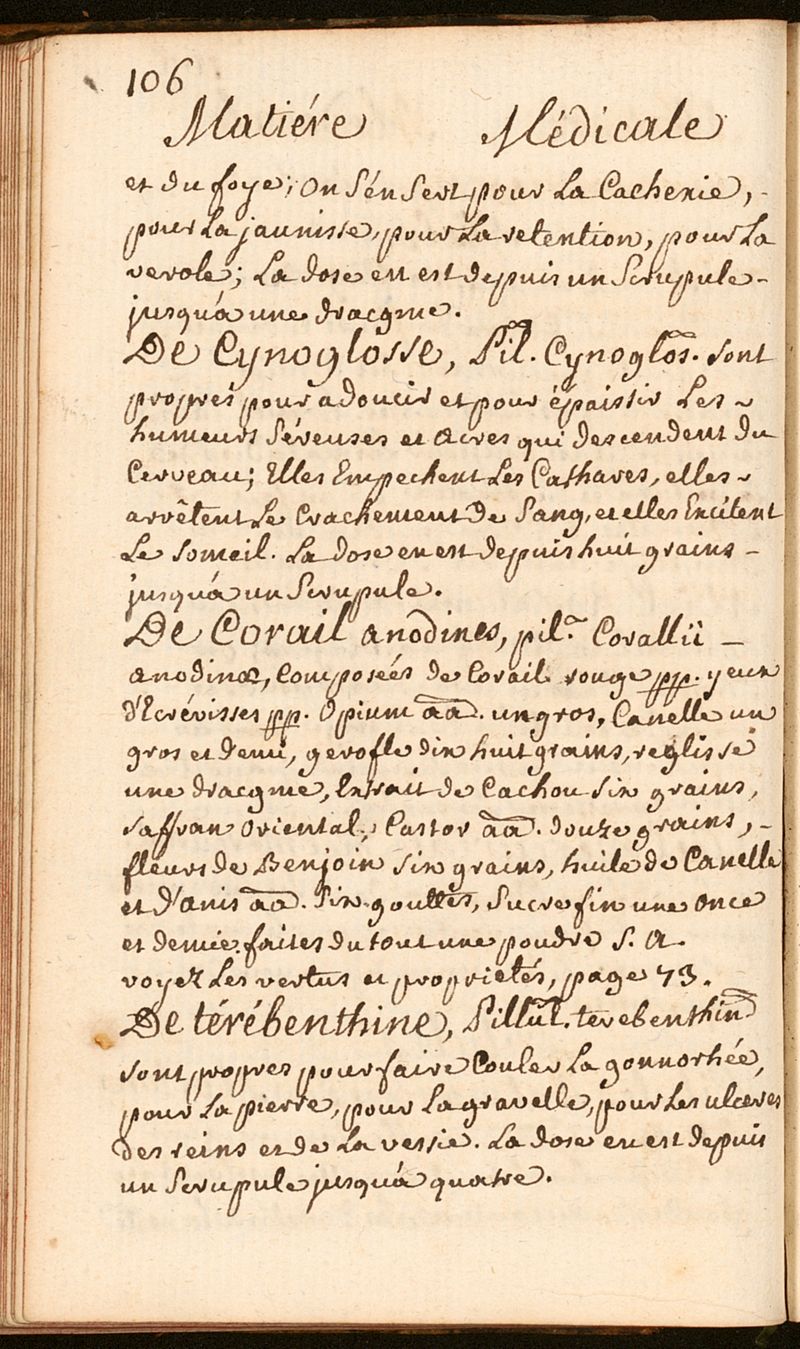 106
Matiére Médicale
et du foye; On s'én sert pour La Cachexie,
pour La jaunisse, pour La retention, pour La
verole; La dose en est depuis un Scrupule
jusqu'á une dracgme.
De Cynoglosse, Pil. Cynoglos. sont
propres pour adoucir et pour épaissir Les
humeurs séreuses et acres qui descendent du
Cerveau; Elles Empechent Les Cathares, elles
arrêtent Le Crachement de Sang, et elles Excitent
Le Someil. La dose en est depuis huit grains
jusqu'á un Scrupule.
De Corail anodines, pil. Corallii
anodinæ, Composeés de Corail rouge pp. yeux
d'Ecrévisses pp. Opium aa. un gros, Canelle un
gros et demi, gerofle dix huit grains, reglisse
une dracgme, Extrait de Cachou six grains,
saffran Oriental, Castor aa. douze grains,
fleurs de Benjoin six grains, huile de Canelle
et d'anis aa. six gouttes, Sucre fin une Once
et demie. faites du tout une poudre S. A.
voyez Les vertus et proprietés, page 73.
De térébenthine, Pillul. terebenthin
sont propres pour faire Couler La gonnorhée,
pour La pierre, pour La gravelle, pour Les ulceres
des reins et de La vessie. La dose en est depuis
un Scrupule jusqu'á quatre.